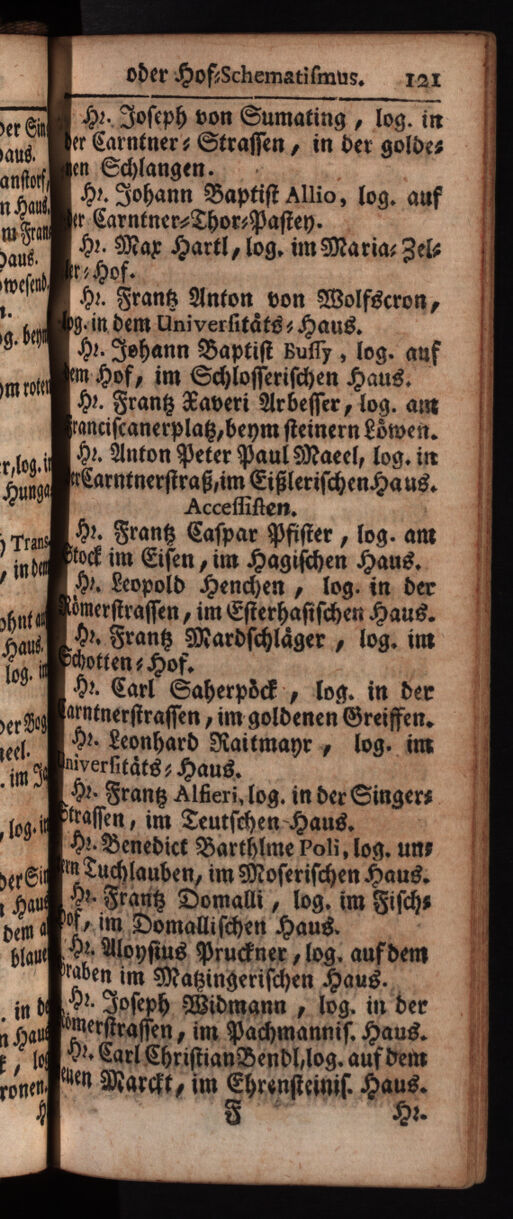 oder Hof-Schematismus. 121
Hr. Joseph von Sumating, log. in
der Carntner-Strassen, in der golde-
nen Schlangen.
Hr. Johann Baptist Allio, log. auf
der Carntner-Thor-Pastey.
Hr. Max Hartl, log. im Maria-Zel-
ler-Hof.
Hr. Frantz Anton von Wolfscron,
log. in dem Universitäts-Haus.
Hr. Johann Baptist Bussy, log. auf
dem Hof, im Schlosserischen Haus.
Hr. Frantz Xaveri Arbesser, log. am
Franciscanerplatz, beym steinern Löwen.
Hr. Anton Peter Paul Maeel, log. in
der Carntnerstraß, im Eißlerischen Haus.
Accessisten.
Hr. Frantz Caspar Pfister, log. am
Stock im Eisen, im Hagischen Haus.
Hr. Leopold Henchen, log. in der
Römerstrassen, im Esterhasischen Haus.
Hr. Frantz Mardschläger, log. im
Schotten-Hof.
Hr. Carl Saherpöck, log. in der
Carntnerstrassen, im goldenen Greiffen.
Hr. Leonhard Raitmayr, log. im
Universitäts-Haus.
Hr. Frantz Alfieri, log. in der Singer-
strassen, im Teutschen Haus.
Hr. Benedict Barthlme Poli, log. un-
ern Tuchlauben, im Moserischen Haus.
Hr. Frantz Domalli, log. im Fisch-
hof, im Domallischen Haus.
Hr. Aloysius Pruckner, log. auf dem
Graben im Matzingerischen Haus.
Hr. Joseph Widmann, log. in der
Römerstrassen, im Pachmannis. Haus.
Hr. Carl Christian Bendl, log. auf dem
neuen Marckt, im Ehrensteinis. Haus.
F Hr.